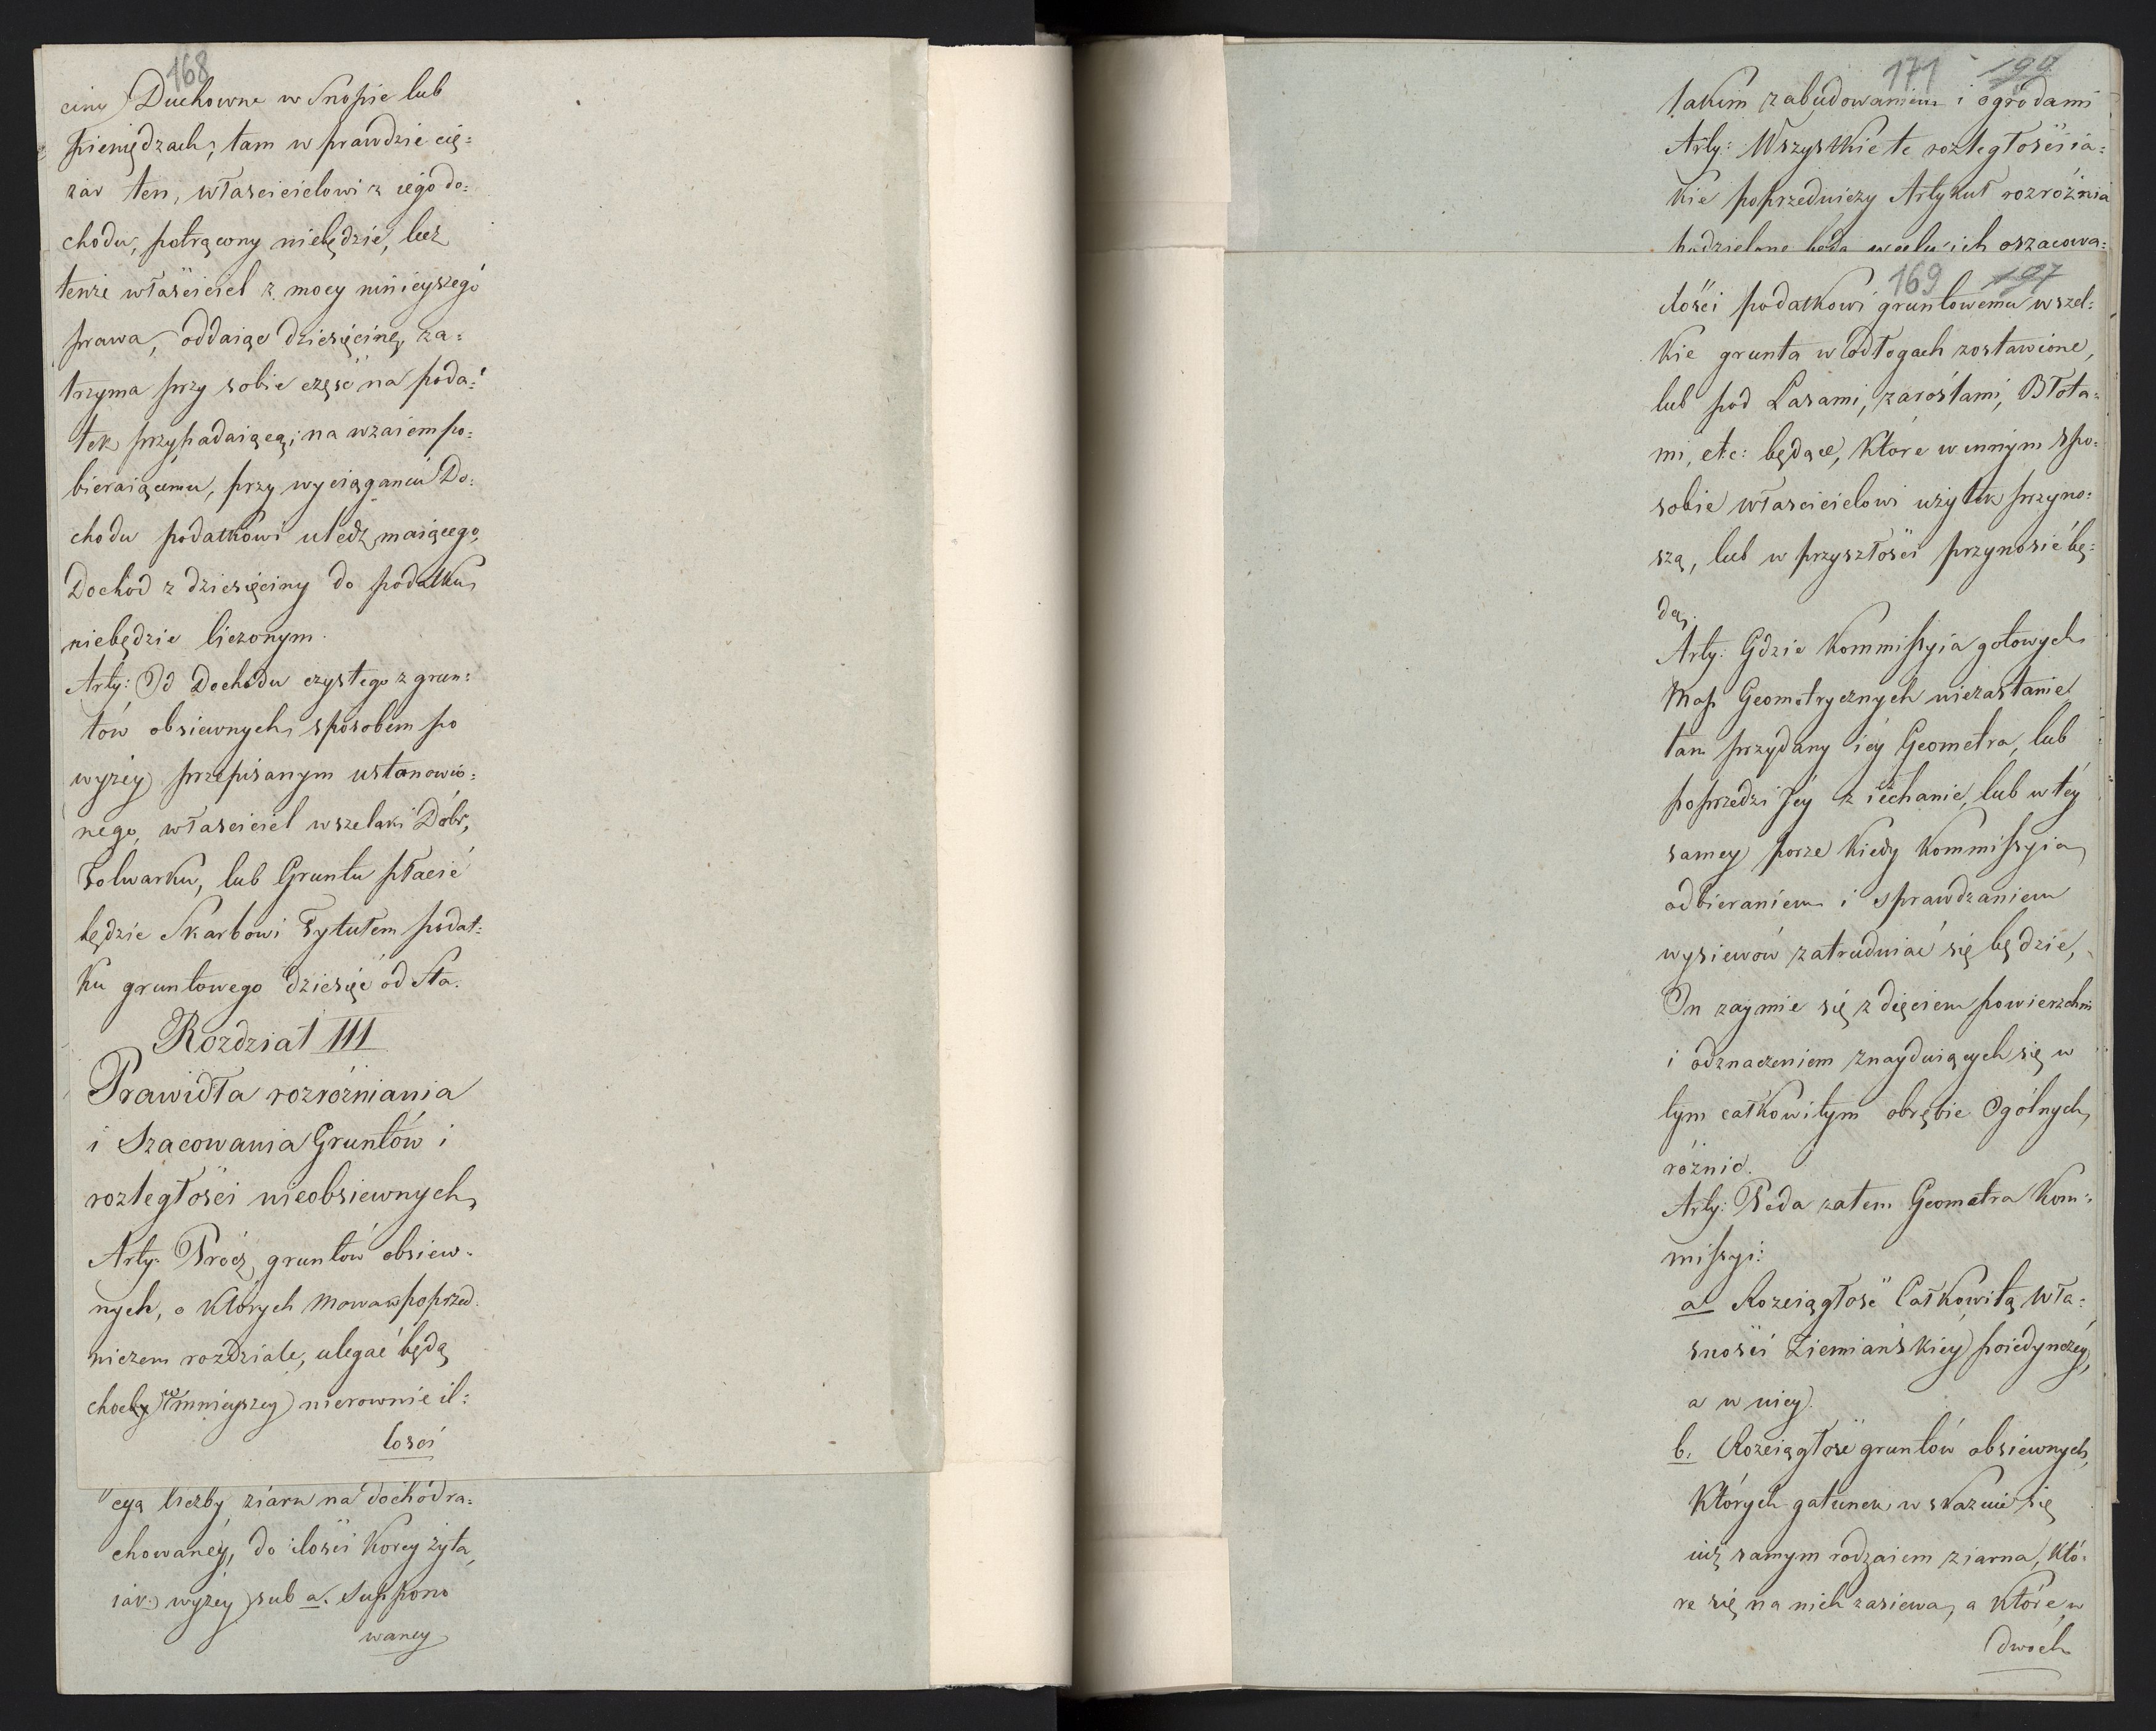 168
ciny Duchowne w Snopie lub
pieniędzach, tam w prawdzie cię=
żar ten, właścicielowi z iego do=
chodu, potrącony niebędzie, lecz
tenże właściciel z mocy ninieyszego
prawa, oddaiąc dziesięcinę, za=
trzyma przy sobie część na poda=
tek przypadaiącą; na wzaiem po=
bieraiącemu, przy wyciąganiu Do=
chodu podatkowi uledz maiącego,
Dochod z dziesięciny do podatku
niebędzie liczonym.
Arty: Od Dochodu czystego z grun=
tów obsiewnych, sposobem po
wyżey przepisanym ustanowio=
nego, właściciel wszelaki Dóbr,
Folwarku, lub Gruntu płacić
będzie Skarbowi Tytułem podat=
ku gruntowego dziesięć od Sta.
Rozdział III
Prawidła rozróżniania
i Szacowania Gruntów i
rozległości nieobsiewnych,
Arty: Prócz gruntów obsiew=
nych, o których mowa w poprzed=
niczem rozdziale, ulegać będą
choć w mnieyszey nierownie il=
lości
cyą liczby ziarn na dochód ra=
chowaney, do ilości Korcy żyta,
iak wyżey sub a. Suppono
waney
171 199
takim zabudowaniem i ogrodami
Arty: Wszystkie te rozległości ia=
kie poprzedniczy Artykuł rozróżnia
podzielone będą w celu ich oszacowa=
169 197
ilości podatkowi gruntowemu wszel=
kie grunta w odłogach zostawione,
lub pod Lasami, zarostami, Błota=
mi, etc: będące, które w innym spo=
sobie właścicielowi użytek przyno=
szą, lub w przyszłości przynosić bę=
dą.
Arty: Gdzie Kommissyia gotowych
Map Geometrycznych niezastanie
tam przydany iey Geometra, lub
poprzedzi Jey ziechanie, lub w tey
samey porze kiedy Kommissyia
odbieraniem i sprawdzaniem
wysiewów zatrudniać się będzie,
On zaymie się zdięciem powierzchni
i odznaczeniem znayduiących się w
tym całkowitym obrębie Ogólnych
różnic.
Arty: Poda zatem Geometra Kom=
missyi:
a Rozciągłość Całkowitą wła=
sności Ziemiańskiey poiedynczey,
a w niey.
b. Rozciągłość gruntów obsiewnych,
Których gatunek wskazuie się
iuż samym rodzaiem ziarna, któ=
re się na nich zasiewa, a które w
dwóch